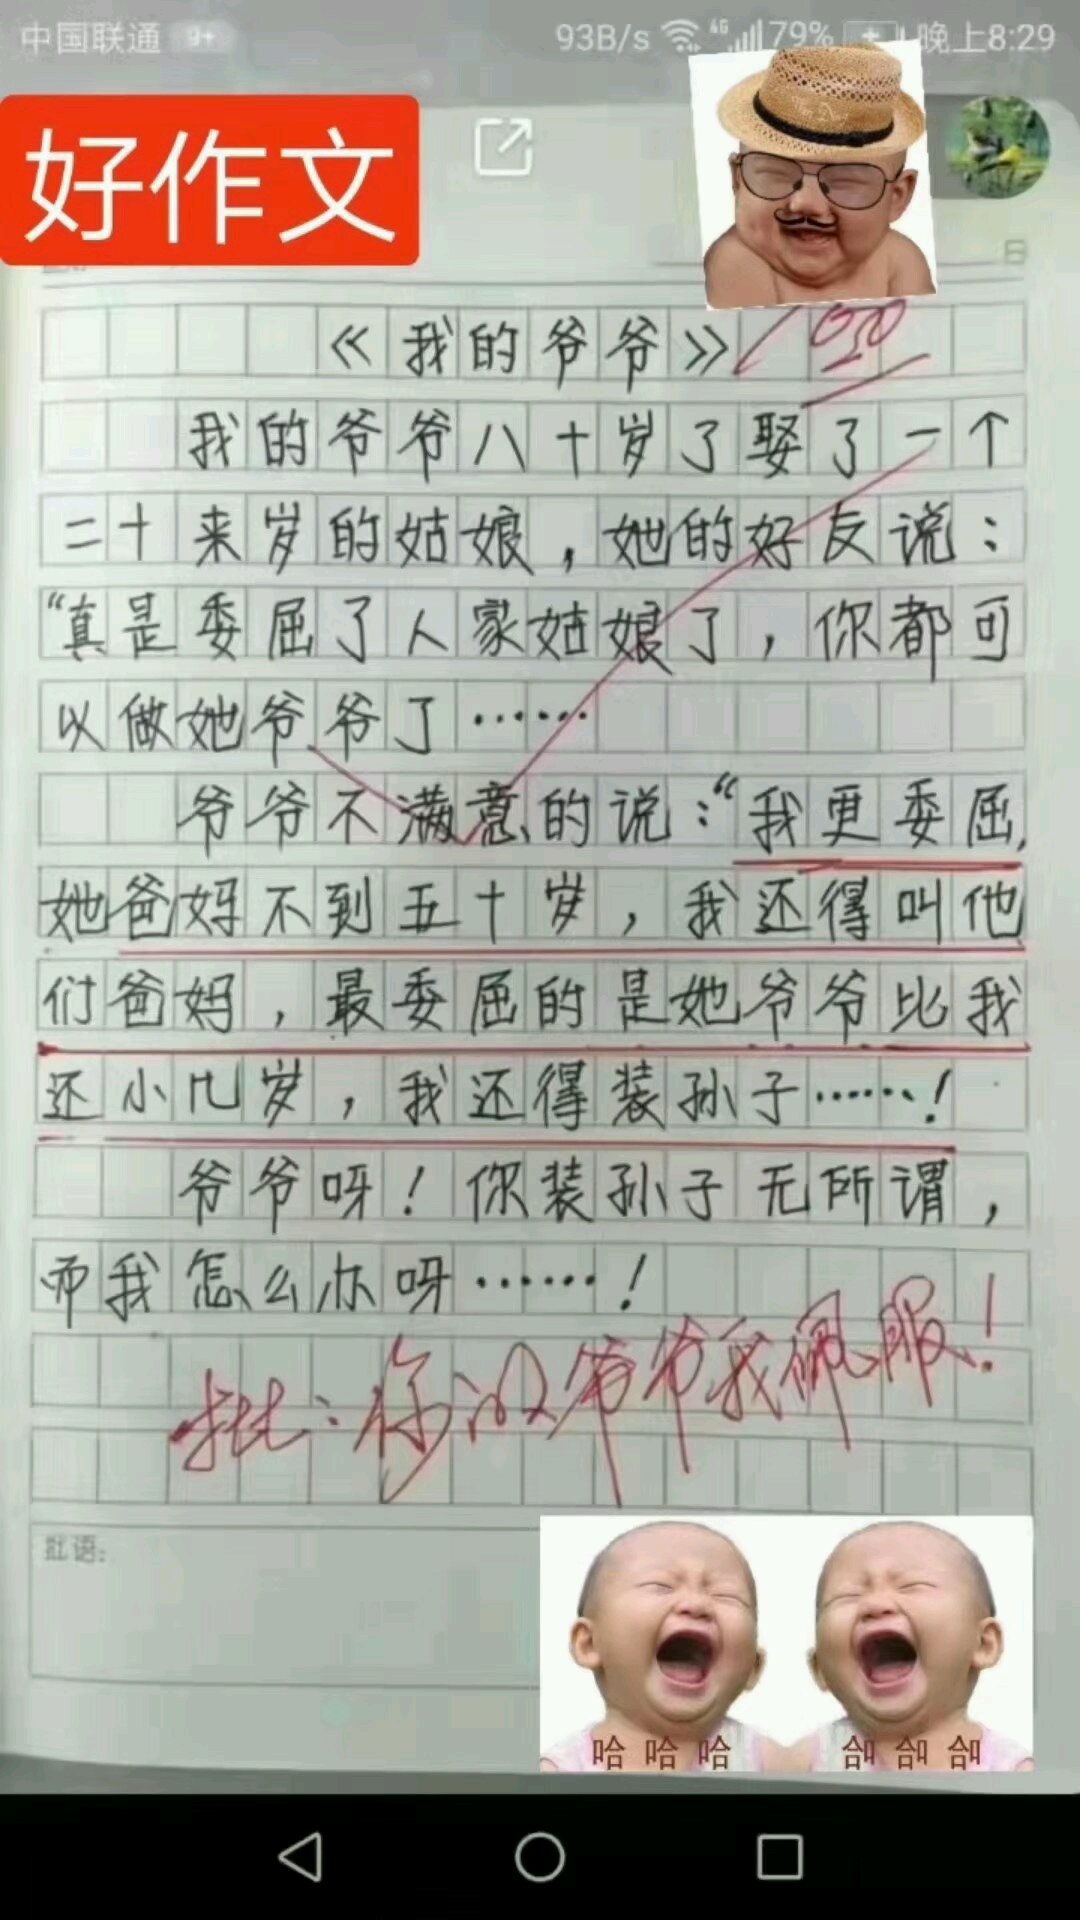 中国联通 9+ 93B/s 4G 79% 晚上8:29
好作文
日
《我的爷爷》 100
我的爷爷八十岁了娶了一个
二十来岁的姑娘，她的好友说：
“真是委屈了人家姑娘了，你都可
以做她爷爷了……
爷爷不满意的说：“我更委屈，
她爸妈不到五十岁，我还得叫他
们爸妈，最委屈的是她爷爷比我
还小几岁，我还得装孙子……！
爷爷呀！你装孙子无所谓，
而我怎么办呀……！
批：你的爷爷我佩服！
批语：
哈哈哈 哈哈哈